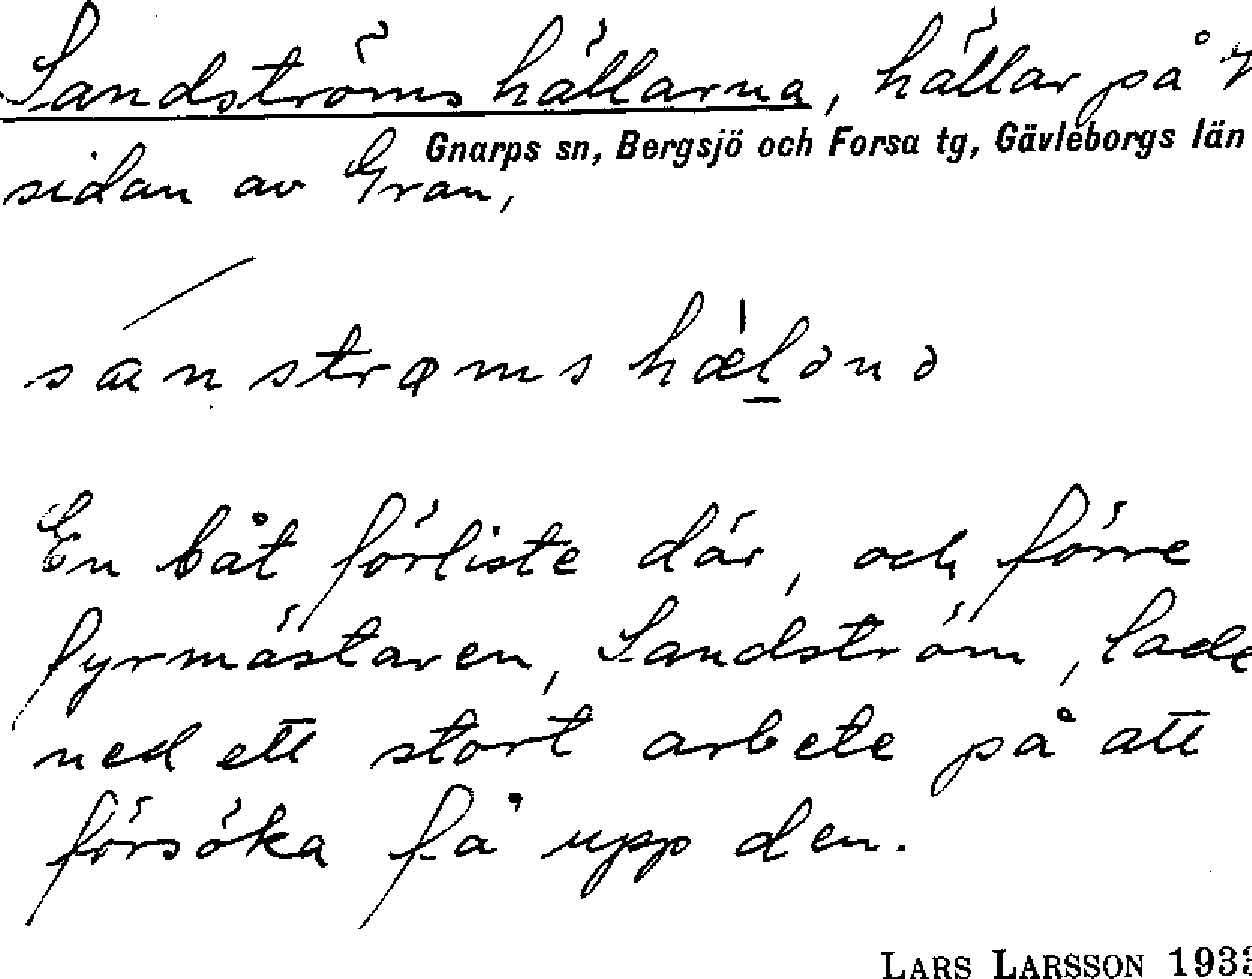 Sandströms hällarna, hällar på
Gnarps sn, Bergsjö och Forsa tg, Gävleborgs län
sidan av Gran,
sanstrøms hæḷənə
En båt förliste där, och förre
fyrmästaren, Sandström, lade
ned ett stort arbete på att
försöka få upp den.
LARS LARSSON 193